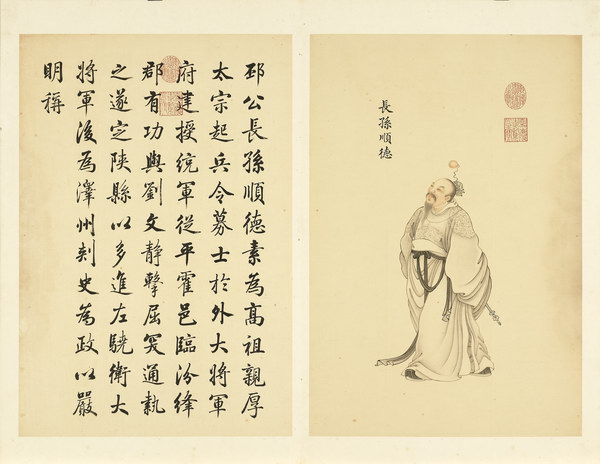 長孫順德
邳公長孫順德素為高祖親厚
太宗起兵令募士於外大將軍
府建授統軍從平霍邑臨汾絳
郡有功與劉文靜擊屈突通執
之遂定陝縣以多進左驍衛大
將軍後為澤州刺史為政以嚴
明稱